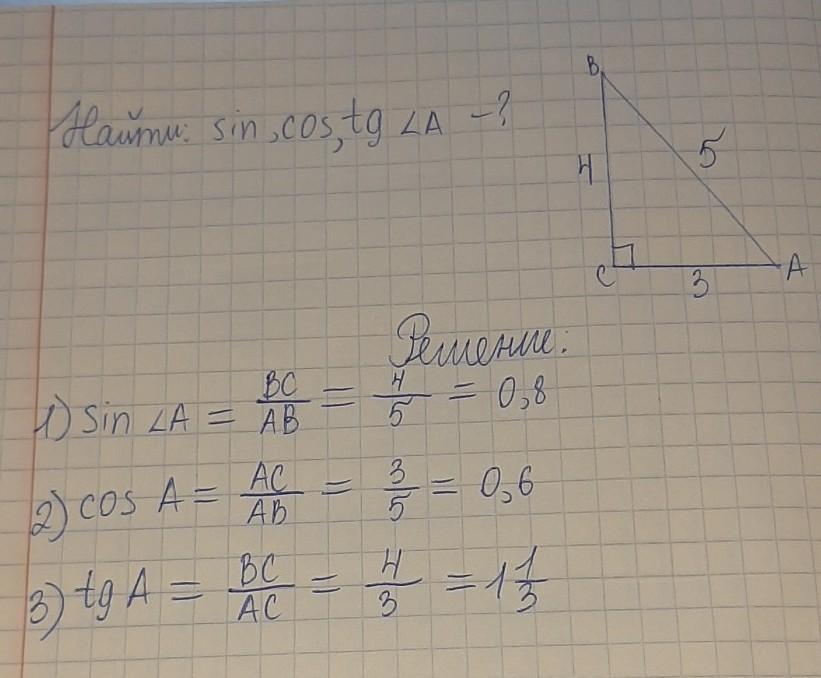 Найти: sin, cos, tg ∠A -?
B
4
5
C
3
A
Решение:
1) sin ∠A = BC/AB = 4/5 = 0,8
2) cos A = AC/AB = 3/5 = 0,6
3) tg A = BC/AC = 4/3 = 1 1/3